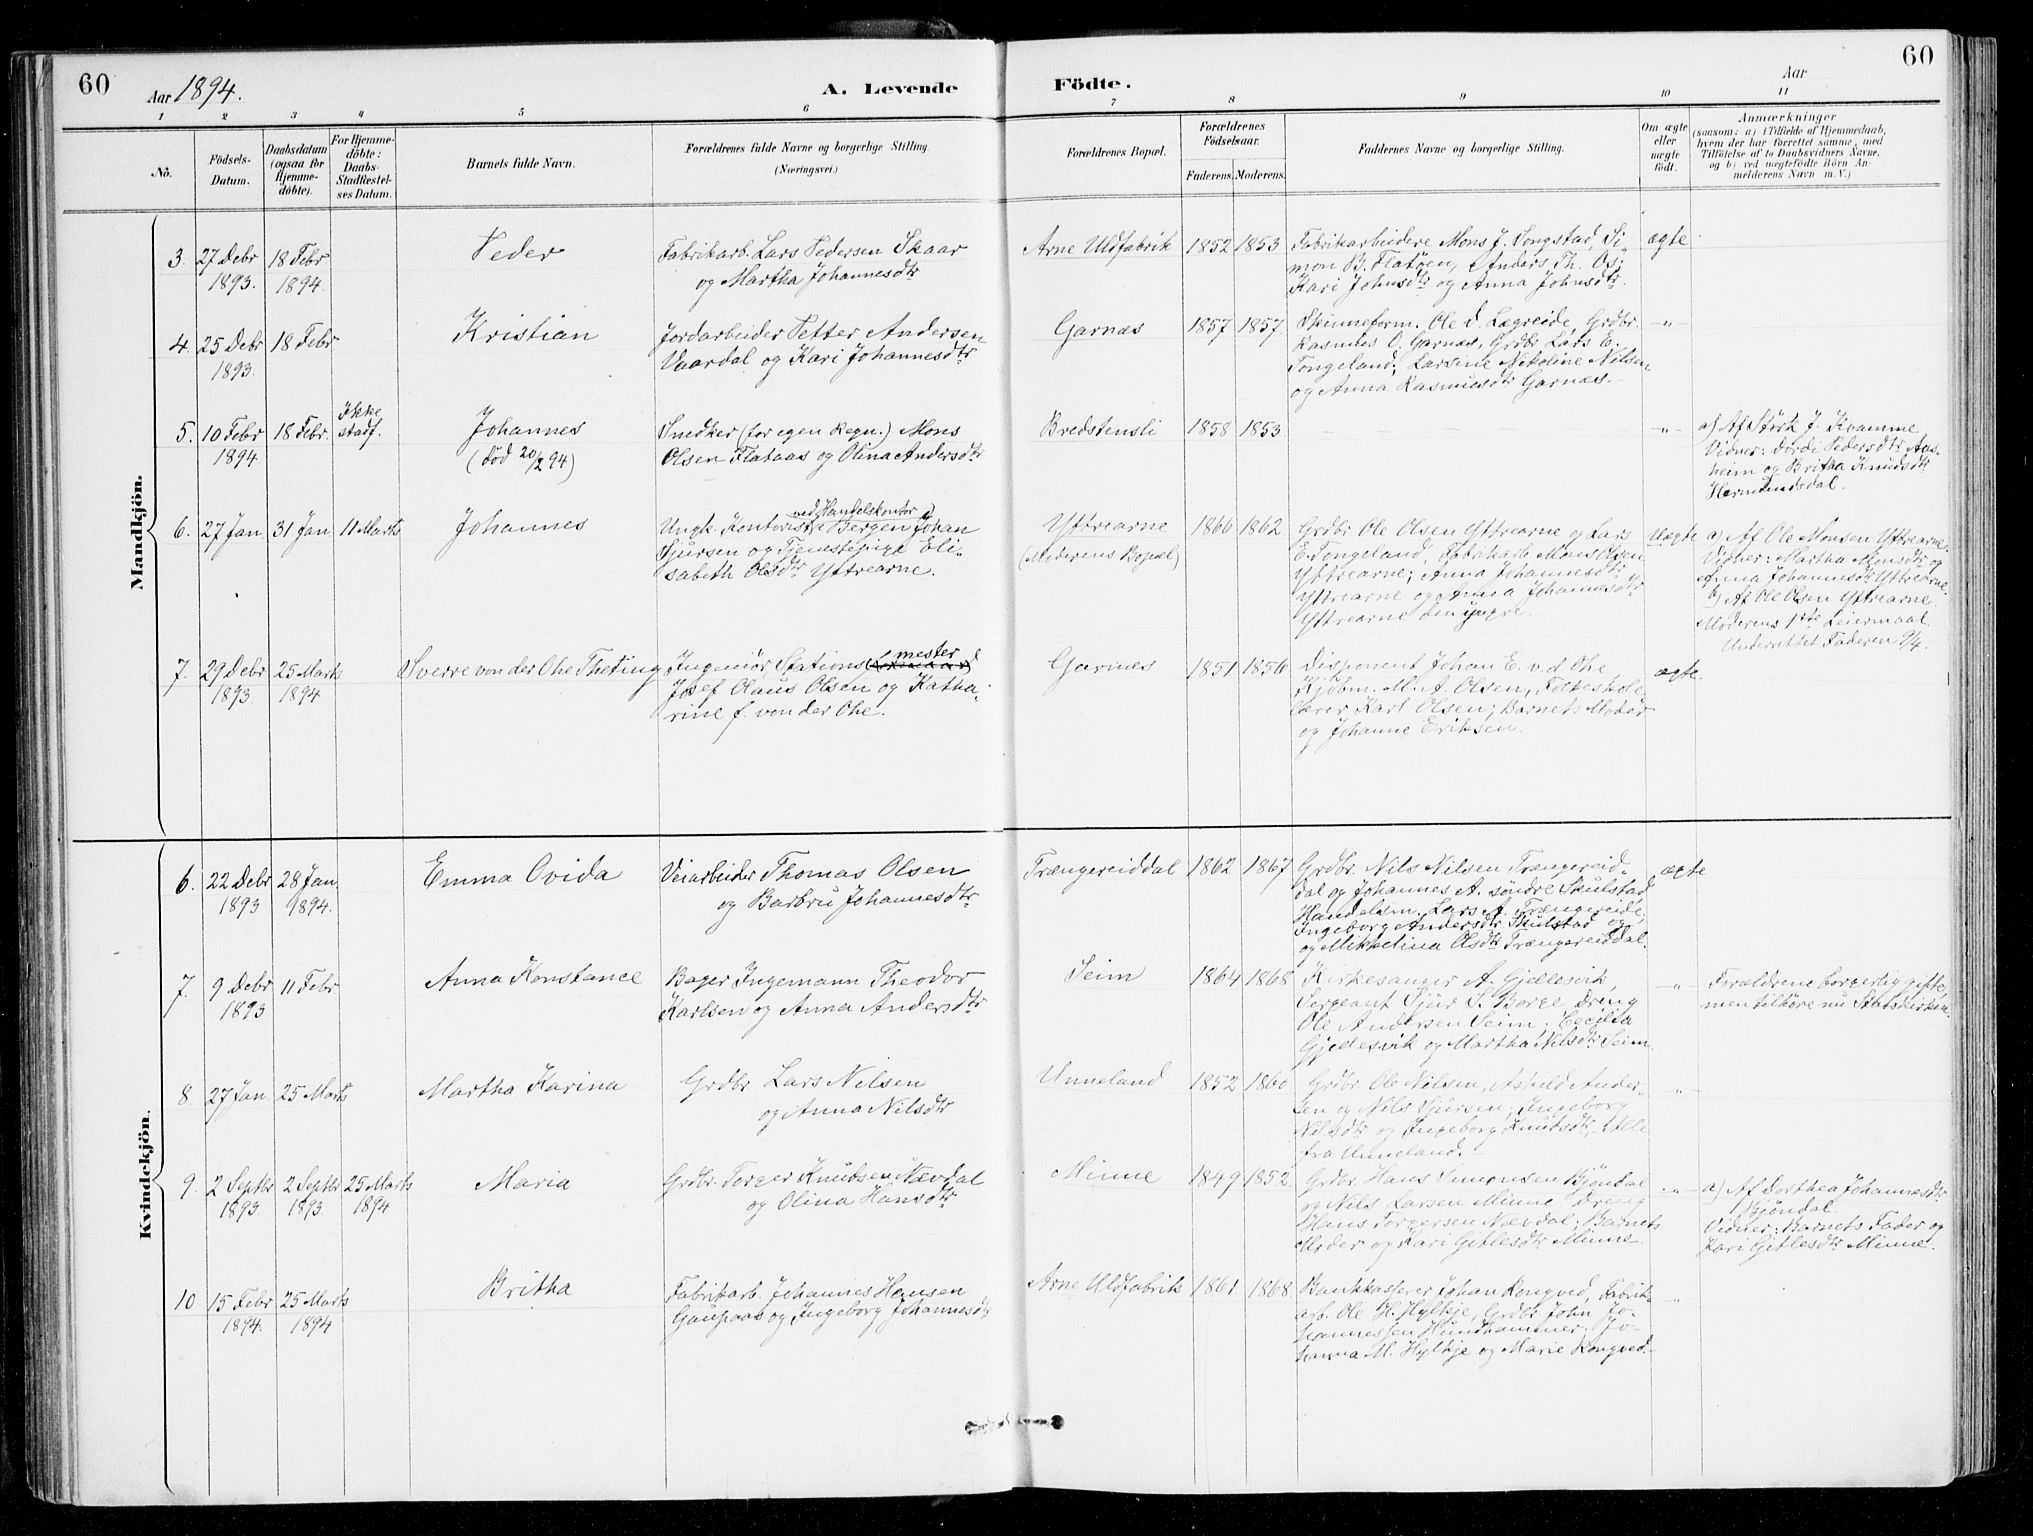 60
Aar 1894.
A. Levende
Födte.
Aar
60
1 2 3 4 5 6 7 8 9 10 11
No.
Födsels-
Datum.
Daabsdatum
(ogsaa for
Hjemme-
döbte).
For Hjemme-
döbte:
Daabs-
Stadfæstel-
ses Datum.
Barnets fulde Navn.
Forældrenes fulde Navne og borgerlige Stilling.
(Næringsvei.)
Forældrenes Bopæl.
Forældrenes
Födselsaar.
Faderens. Moderens.
Faddernes Navne og borgerlige Stilling.
Om ægte
eller
uægte
födt.
Anmærkninger
(saasom: a) i Tilfælde af Hjemmedaab,
hvem der har forrettet samme, med
Tilföielse af to Daabsvidners Navne.
og b) ved uægtefödte Börn An-
melderens Navn m. V.)
Mandkjön.
3. 27 Debr 18 Febr
1893. 1894.
Peder
Fabrikarb. Lars Pedersen Skaar
og Martha Johannesdtr
Arne Uldfabrik 1852 1853
Fabrikarbeidere Mons J. Songstad, Si-
mon B. Flatøen, Anders Th. Os;
Kari Johnsdtr og Anna Johnsdtr.
ægte
4. 25 Debr 18 Febr
1893.
Kristian
Jordarbeider Petter Andersen
Vaardal og Kari Johannesdtr
Garnæs 1857 1857
Skinneform. Ole d. Lægreide, Grdbr.
Rasmus O. Garnæs, Grdbr Lars E.
Tongeland; Larsine Nikoline Nilsen
og Anna Rasmusdtr Garnæs.
-"-
5. 10 Febr 18 Febr. Ikke
1894 stadf.
Johannes
(död 20/2 94)
Snedker (for egen Regn.) Mons
Olsen Flataas og Olina Andersdtr
Bredstensli 1858 1853
-"-
a) Af Störk J. Kvamme
Vidner: Dordi Pedersdtr Aas-
heim og Britha Knudsdtr
Hermundsdal.
6. 27 Jan 31 Jan 11 Marts
Johannes
ved Handelskontor i
Ungk. Kontorist Bergen Johan
Sjursen og Tjenestepige Eli-
sabeth Olsdtr Yttrearne.
Yttrearne
(Moderens Bopæl)
1866 1862
Grdbr Ole Olsen Yttrearne og Lars
E. Tongeland, Fabrikarb. Mons Olsen
Yttrearne; Anna Johannesdtr
Yttrearne og Anna Johannesdtr
Yttrearne den yngre.
Uægte
a) Af Ole Monsen Yttrearne.
Vidner: Martha Monsdtr og
Anna Johannesdtr Yttrearne.
b) Af Ole Olsen Yttrearne.
Moderens 1ste Leiermaal.
Underrettet Faderen 9/4.
7. 29 Debr 25 Marts
1893 1894
Sverre von der Ohe Theting
Ingeniör, Stationsmester
Josef Olaus Olsen og Katha-
rine f. von der Ohe.
Garnæs 1851 1856
Disponent Johan E. v. d Ohe
Kjöbm. M. A. Olsen, Folkeskole-
lærer Karl Olsen; Barnets Moder
og Johanne Eriksen.
ægte
Kvindekjön.
6. 22 Debr 28 Jan
1893 1894.
Emma Ovida
Veiarbeider Thomas Olsen
og Barbru Johannesdtr
Trængereiddal 1862 1867
Grdbr. Nils Nilsen Trængereid-
dal og Johannes A. söndre Skulstad,
Handelsm. Lars A. Trængereide;
Ingeborg Andersdtr Skulstad og
og Mikkelina Olsdtr Trængereiddal.
ægte
7. 9 Debr 11 Febr
1893
Anna Konstance
Bager Ingemann Theodor
Karlsen og Anna Andersdtr
Seim 1864 1868
Kirkesanger A. Gjellesvik,
Sergeant Sjur S. Borge, Dreng
Ole Andersen Seim; Cecilia
Gjellesvik og Martha Nilsdtr Seim.
-"-
Forældrene borgerlig gifte,
men tilhöre nu Statskirken.
8. 27 Jan. 25 Marts
Martha Karina
Grdbr Lars Nilsen
og Anna Nilsdtr
Unneland 1852 1860
Grdbr. Ole Nilsen, Askild Ander-
sen og Nils Sjursen; Ingeborg
Nilsdtr og Ingeborg Knudsdtr, Alle
fra Unneland.
-"-
9. 2 Septbr 2 Septbr 25 Marts
1893 1893 1894
Maria
Grdbr. Torger Knudsen Nævdal
og Olina Hansdtr
Minne 1849 1852.
Grdbr. Hans Simonsen Bjöndal
og Nils Larsen Minne, Dreng
Hans Torgersen Nævdal; Barnets
Moder og Kari Gitlesdtr Minne.
-"-
a) Af Dorthea Johannesdtr
Bjöndal.
Vidner: Barnets Fader og
Kari Gitlesdtr Minne.
10 15 Febr 25 Marts
1894. 1894
Britha
Fabrikarb. Johannes Hansen
Gaupaas og Ingeborg Johannesdtr
Arne Uldfabrik 1861 1868.
Bankkasserer Johan Rongved, Fabrik-
arb. Ole H. Hylkje, Grdbr John Jo-
hannessen Hundhammer; Jo-
hanna M. Hylkje og Marie Rongved.
-"-